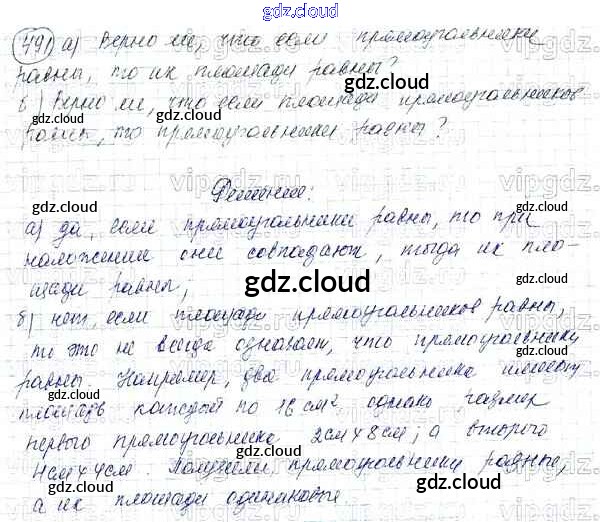 491 а) Верно ли, что если прямоугольники
равны, то их площади равны?
б) Верно ли, что если площади прямоугольников
равны, то прямоугольники равны?
Решение:
а) да, если прямоугольники равны, то при
наложении они совпадают, тогда их пло-
щади равны;
б) нет, если площади прямоугольников равны,
то это не всегда означает, что прямоугольники
равны. Например, два прямоугольника имеют
площадь каждый по 16 см², однако размер
первого прямоугольника 2см х 8см; а второго
4см х 4см. Получили, прямоугольники разные,
а их площади одинаковые
gdz.cloud